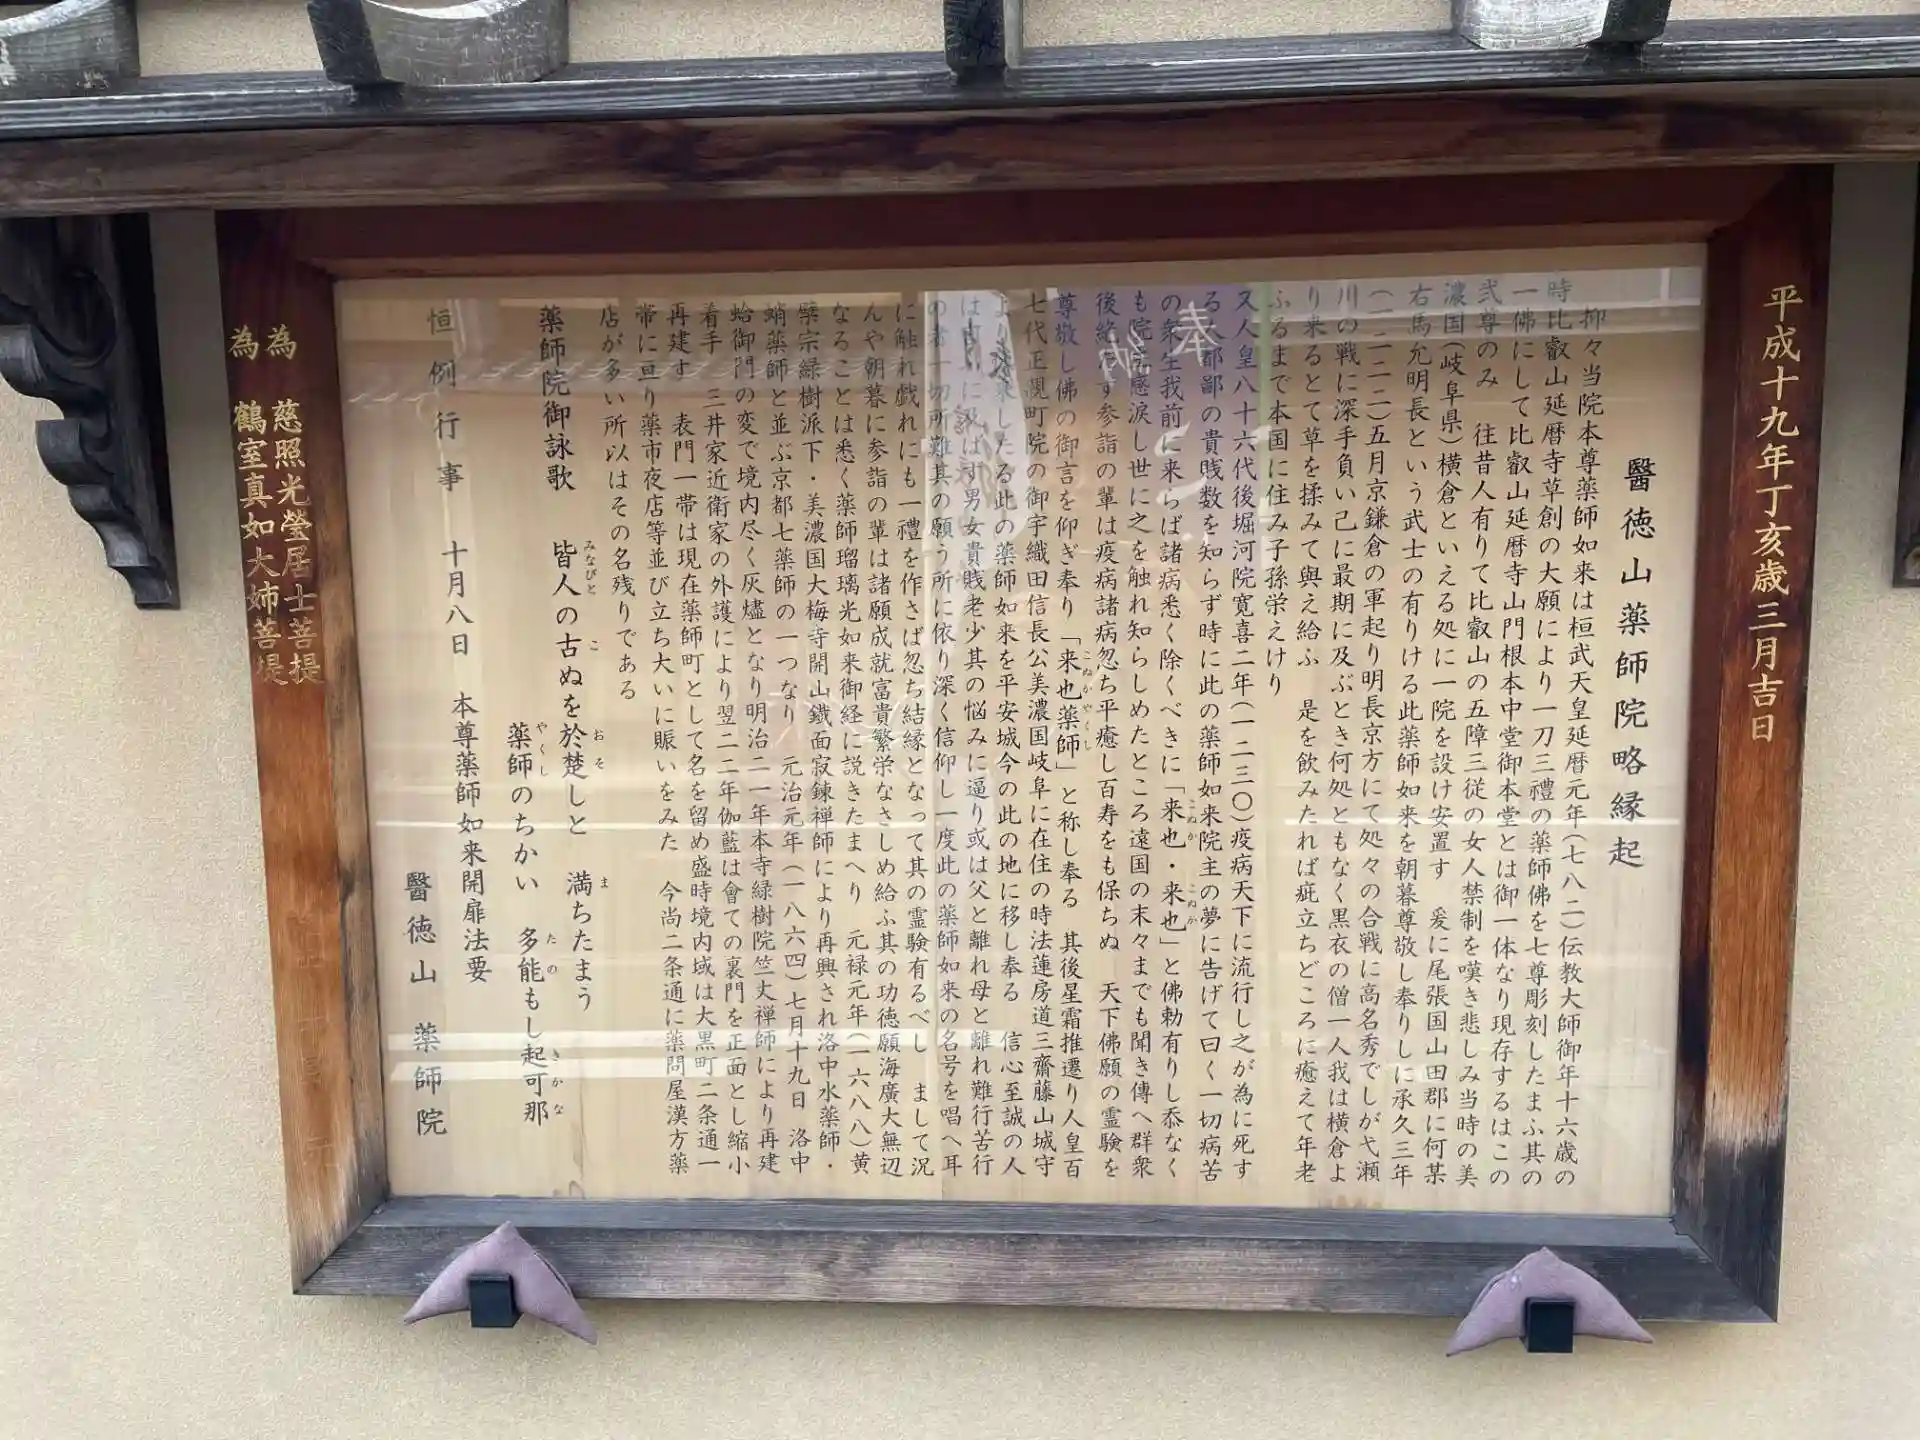 平成十九年丁亥歳三月吉日
醫徳山薬師院略縁起
抑々当院本尊薬師如来は桓武天皇延暦元年(七八二)伝教大師御年十六歳の
時比叡山延暦寺草創の大願により一刀三禮の薬師佛を七尊彫刻したまふ其の
一佛にして比叡山延暦寺山門根本中堂御本堂とは御一体なり現存するはこの
弐尊のみ　往昔人有りて比叡山の五障三従の女人禁制を嘆き悲しみ当時の美
濃国(岐阜県)横倉といえる処に一院を設け安置す　爰に尾張国山田郡に何某
右馬允明長という武士の有りける此薬師如来を朝暮尊敬し奉りしに承久三年
(一二二二)五月京鎌倉の軍起り明長京方にて処々の合戦に高名秀でしが弋瀬
川の戦に深手負い己に最期に及ぶとき何処ともなく黒衣の僧一人我は横倉よ
り来るとて草を揉みて與え給ふ　是を飲みたれば疵立ちどころに癒えて年老
ふるまで本国に住み子孫栄えけり
又人皇八十六代後堀河院寛喜二年(一二三〇)疫病天下に流行し之が為に死す
る人都鄙の貴賎数を知らず時に此の薬師如来院主の夢に告げて曰く一切病苦
の衆生我前に来らば諸病悉く除くべきに「来也・来也」と佛勅有りし忝なく
も院主感涙し世に之を触れ知らしめたところ遠国の末々までも聞き傳へ群衆
後絶たず参詣の輩は疫病諸病忽ち平癒し百寿をも保ちぬ　天下佛願の霊験を
尊敬し佛の御言を仰ぎ奉り「来也薬師」と称し奉る　其後星霜推遷り人皇百
七代正親町院の御宇織田信長公美濃国岐阜に在住の時法蓮房道三齋藤山城守
より傳来したる此の薬師如来を平安城今の此の地に移し奉る　信心至誠の人
は言いに及ばず男女貴賎老少其の悩みに逼り或は父と離れ母と離れ難行苦行
の者一切所難其の願う所に依り深く信仰し一度此の薬師如来の名号を唱へ耳
に触れ戯れにも一禮を作さば忽ち結縁となって其の霊験有るべし　まして況
んや朝暮に参詣の輩は諸願成就富貴繁栄なさしめ給ふ其の功徳願海廣大無辺
なることは悉く薬師瑠璃光如来御経に説きたまへり　元禄元年(一六八八)黄
檗宗緑樹派下・美濃国大梅寺開山鐵面寂錬禅師により再興され洛中水薬師・
蛸薬師と並ぶ京都七薬師の一つなり　元治元年(一八六四)七月十九日　洛中
蛤御門の変で境内尽く灰燼となり明治二一年本寺緑樹院竺丈禅師により再建
着手　三井家近衛家の外護により翌二二年伽藍は會ての裏門を正面とし縮小
再建す　表門一帯は現在薬師町として名を留め盛時境内域は大黒町二条通一
帯に亘り薬市夜店等並び立ち大いに賑いをみた　今尚二条通に薬問屋漢方薬
店が多い所以はその名残りである
薬師院御詠歌　皆人の古ぬを於楚しと　満ちたまう
薬師のちかい　多能もし起可那
恒例行事　十月八日　本尊薬師如来開扉法要
醫徳山　薬師院
為　慈照光瑩居士菩提
為　鶴室真如大姉菩提